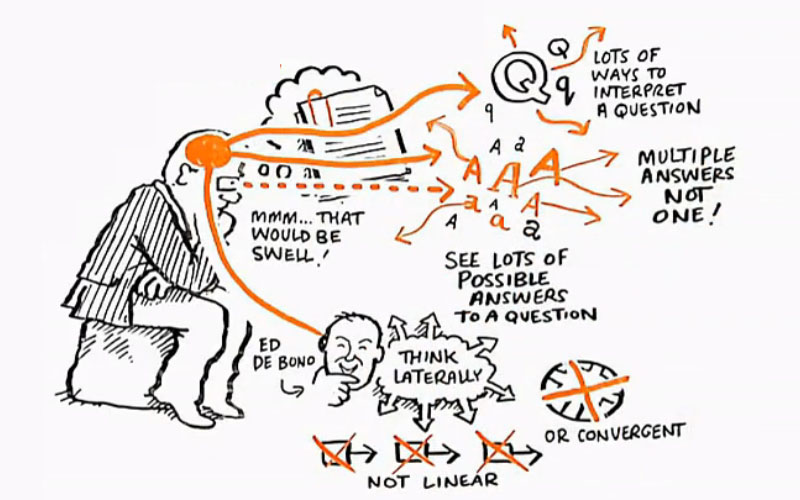 Q
Q
q
q
LOTS OF
WAYS TO
INTERPRET
A QUESTION
A a
A A A
a A A
A a a
MULTIPLE
ANSWERS
NOT
ONE!
MMM... THAT
WOULD BE
SWELL!
SEE LOTS OF
POSSIBLE
ANSWERS
TO A QUESTION
ED
DE BONO
THINK
LATERALLY
OR CONVERGENT
NOT LINEAR